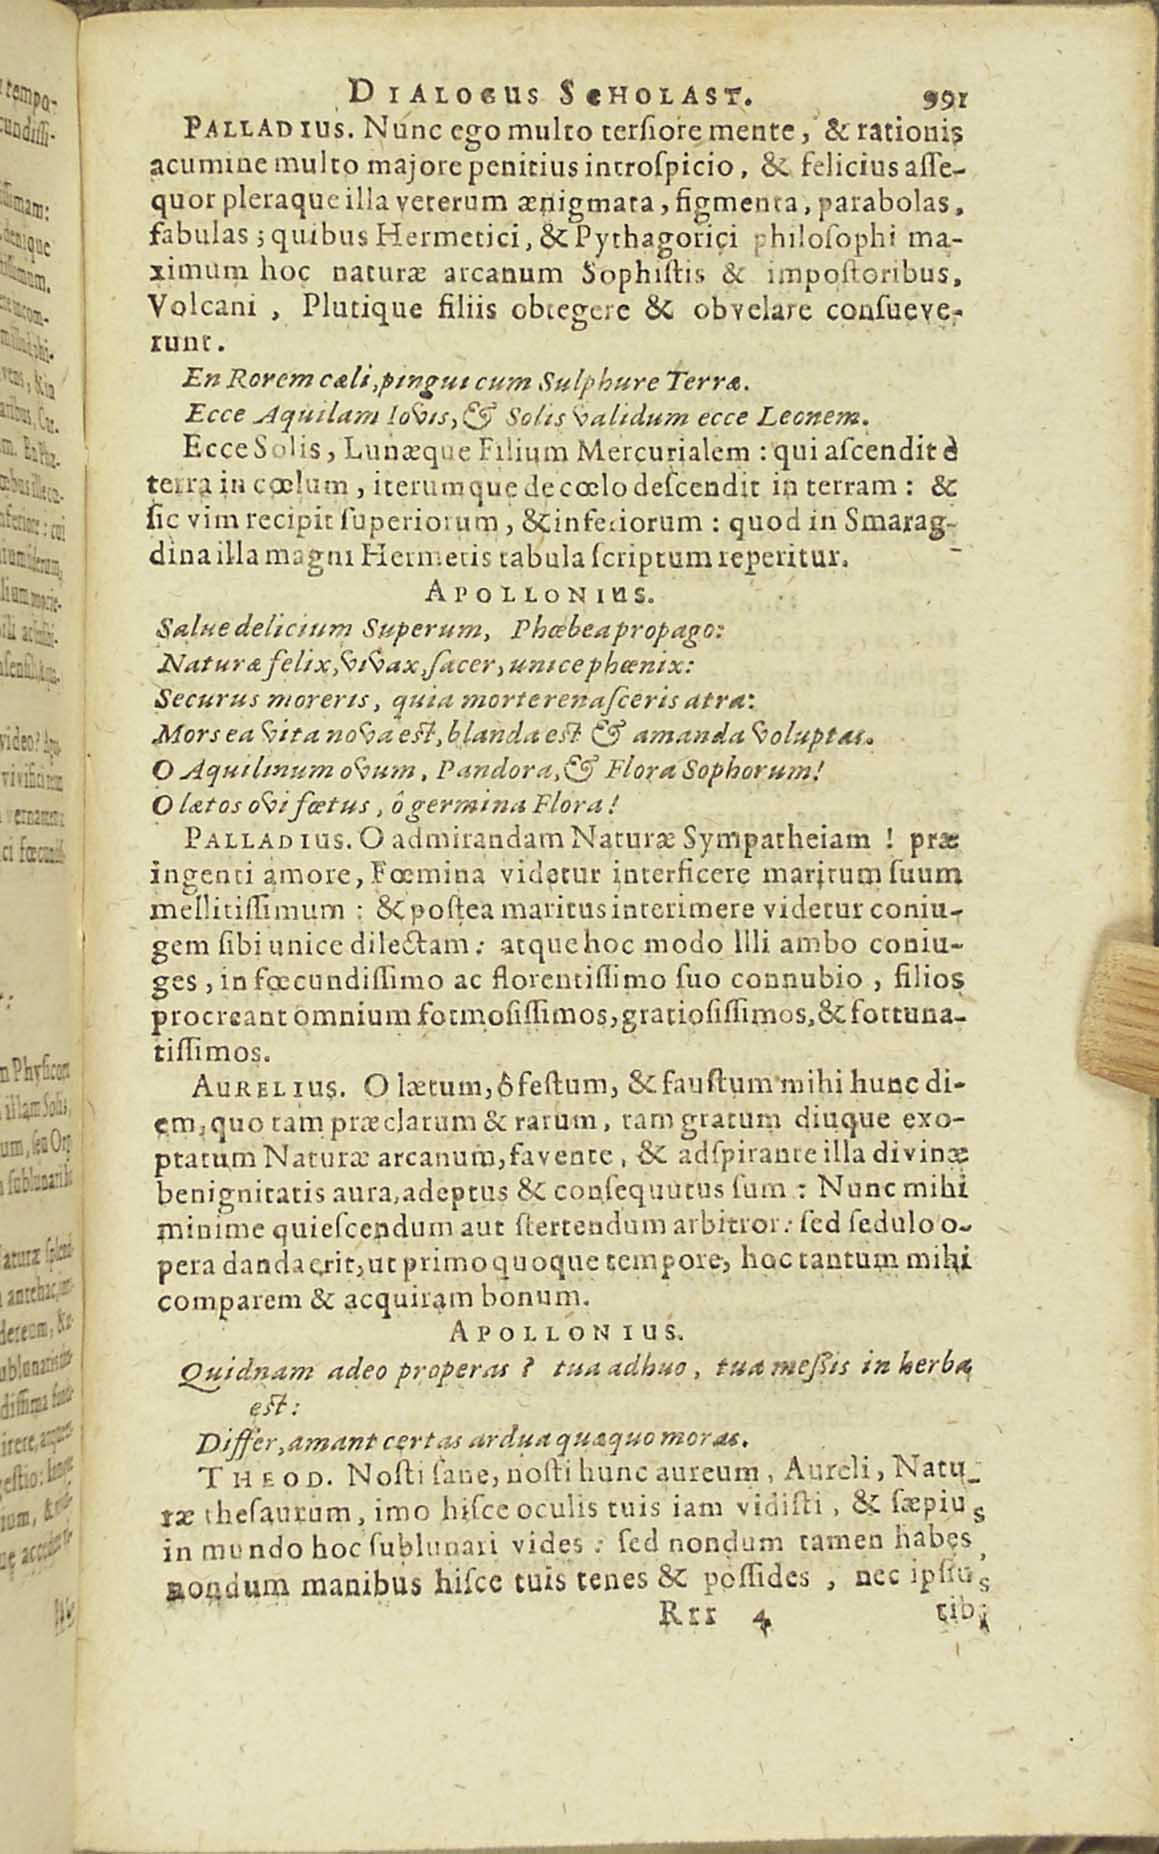 DIALOGUS SCHOLAST. 991
PALLADIUS. Nunc ego multo tersiore mente, & rationis
acumine multo majore penitius introſpicio, & felicius aſſe-
quor pleraque illa veterum ænigmata, figmenta, parabolas,
fabulas; quibus Hermetici, & Pythagorici philoſophi ma-
ximum hoc naturæ arcanum Sophiſtis & impoſtoribus,
Volcani, Plutique filiis obtegere & obvelare conſueve-
runt.
En Rorem cæli, pingui cum Sulphure Terræ.
Ecce Aquilam Iovis, & Solis validum ecce Leonem.
Ecce Solis, Lunæque Filium Mercurialem: qui aſcendit è
terra in cœlum, iterumque de cœlo deſcendit in terram: &
ſic vim recipit ſuperiorum, & inferiorum: quod in Smarag-
dina illa magni Hermetis tabula ſcriptum reperitur.
APOLLONIUS.
Salue delicium Superum, Phœbea propago:
Naturæ felix, vivax, ſacer, unice phœnix:
Securus moreris, quia morte renaſceris atra:
Mors ea vita nova eſt, blanda eſt & amanda voluptas.
O Aquilinum ovum, Pandora, & Flora Sophorum!
O lætos ovi fœtus, ô germina Flora!
PALLADIUS. O admirandam Naturæ Sympatheiam! præ
ingenti amore, Fœmina videtur interficere maritum ſuum
mellitiſſimum: & poſtea maritus interimere videtur coniu-
gem ſibi unice dilectam: atque hoc modo illi ambo coniu-
ges, in fœcundiſſimo ac florentiſſimo ſuo connubio, filios
procreant omnium formoſiſſimos, gratioſiſſimos, & fortuna-
tiſſimos.
AURELIUS. O lætum, ô feſtum, & fauſtum mihi hunc di-
em, quo tam præclarum & rarum, tam gratum diuque exo-
ptatum Naturæ arcanum, favente, & adſpirante illa divinæ
benignitatis aura, adeptus & conſequutus ſum: Nunc mihi
minime quieſcendum aut ſtertendum arbitror: ſed ſedulo o-
pera danda erit, ut primo quoque tempore, hoc tantum mihi
comparem & acquiram bonum.
APOLLONIUS.
Quidnam adeo properas? tua adhuo, tua meſſis in herba
eſt:
Differ, amant certas ardua quæquo moras.
THEOD. Noſti ſane, noſti hunc aureum, Aureli, Natu-
ræ theſaurum, imo hiſce oculis tuis iam vidiſti, & ſæpius
in mundo hoc ſublunari vides: ſed nondum tamen habes,
nondum manibus hiſce tuis tenes & poſſides, nec ipſius
Rrr 4 tibi